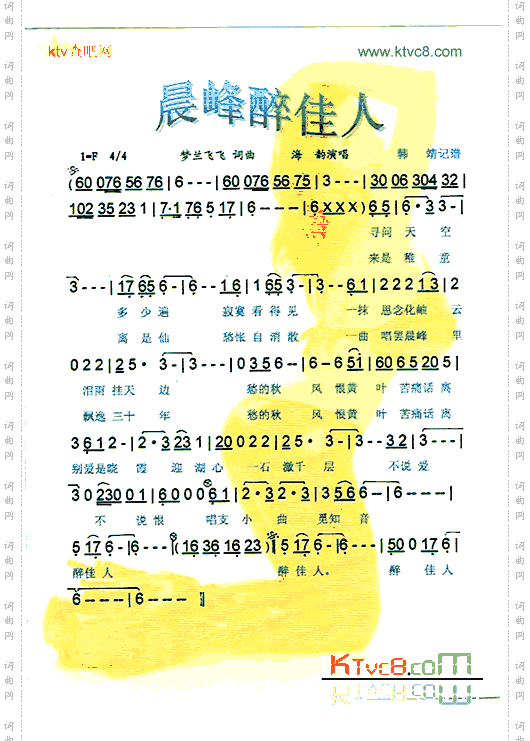 ktv查吧网 www.ktvc8.com
晨峰醉佳人
1=F 4/4 梦兰飞飞 词曲 海 韵演唱 韩 靖记谱
(60 076 56 76 | 6 - - - | 60 076 56 75 | 3 - - - | 30 06 304 32 |
102 35 23 1 | 7·1 76 5 17 | 6 - - - | 6 X X X) 65 | 6· 3 3 - |
寻问 天 空
来是 稚 童
3 - - - | 17 65 6 - | 6 - - 16 | 123 3 - | 3 - - 31 | 2 2 2 13 | 2
多 少 遍 寂寞 看 得 见 一抹 思念化岫 云
离 是 仙 愁怅 自 消 散 一曲 唱罢晨峰 里
0 2 2 | 25· 3 - | 3 - - - | 0 3 5 6 - - | 6 - 6 51 | 60 65 20 5 |
泪雨 挂天 边 愁的秋 风 恨黄 叶 苦痛话 离
飘逸 三十 年 愁的秋 风 恨黄 叶 苦痛话 离
3 61 2 - | 2· 3 23 1 | 20 0 2 2 | 25· 3 - | 3 - 5 32 | 3 - - - |
别爱是晓 霞 迎 湖 心 一石 激千 层 不说 爱
3 0 23 00 1 | 6 0 0 0 61 | 2· 32· 3 | 35 66 - | 6 - - - |
不 说 恨 唱支 小 曲 觅知 音
5 17 6 - | 6 - - - (16 36 16 23) 5 17 6 - | 6 - - - | 50 0 17 6 |
醉佳 人 醉佳 人。 醉 佳 人
6 - - - | 6 - - - ‖
KTvc8.com
词曲网